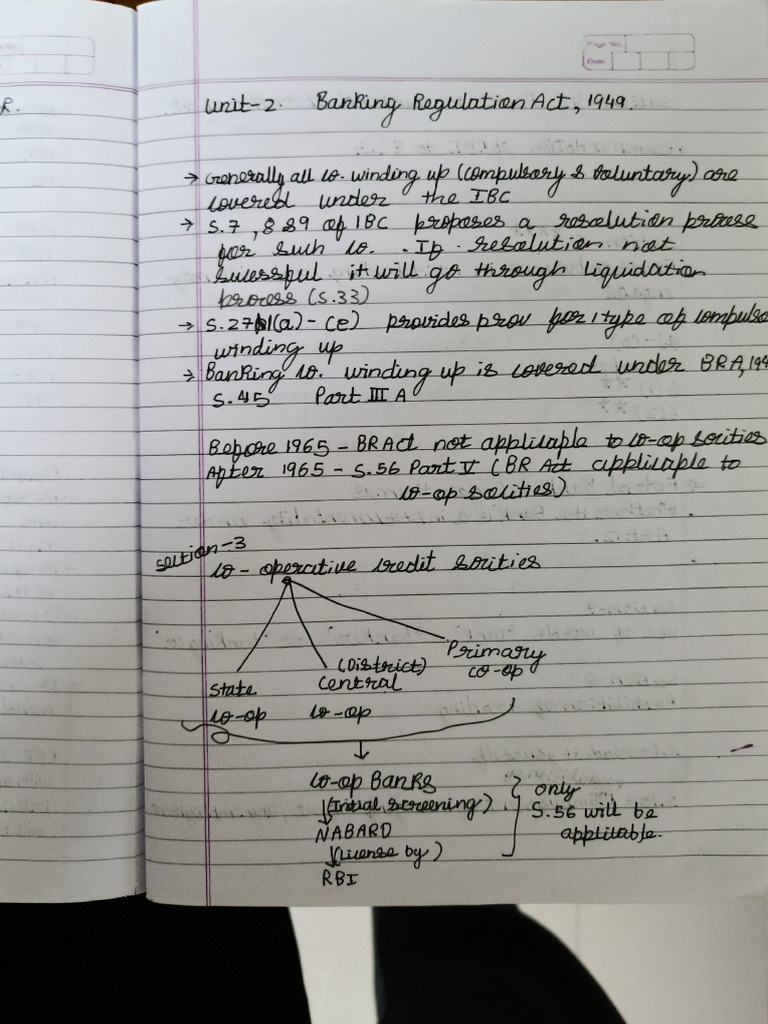 R.
Page No.
Date
Unit-2. Banking Regulation Act, 1949.
→ Generally all co. winding up (compulsory & voluntary) are
covered under the IBC
→ S.7, 8 & 9 of IBC proposes a resolution process
for such co. . If resolution not
sucessful it will go through liquidation
process (S.33)
→ S.271(a) - (e) provides prov for 1 type of compulso
winding up
→ Banking co. winding up is covered under BRA, 194
S.45 Part III A
Before 1965 - BR Act not applicable to co-op socities
After 1965 - S.56 Part V (BR Act applicable to
co-op socities)
Section-3
co-operative credit socities
Primary
co-op
(District)
State Central
co-op co-op
↓
co-op Banks
↓ (Initial screening)
NABARD
↓ (License by)
RBI
only
S.56 will be
applicable.